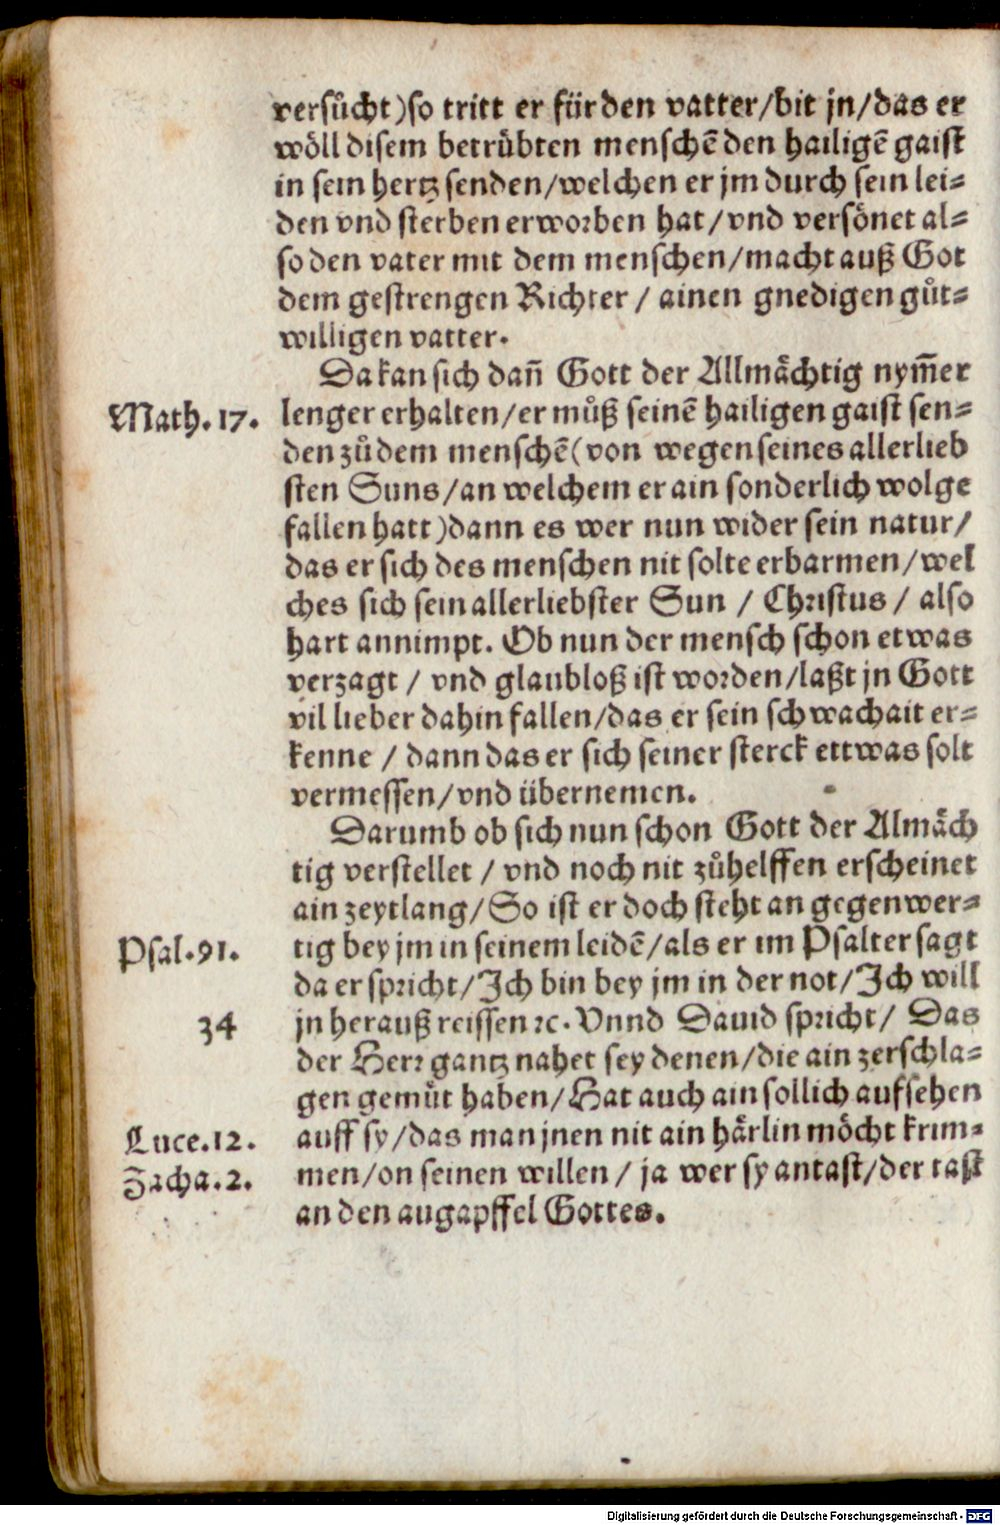 versuͤcht)so tritt er fürden vatter/bit jn/das er
woͤll disem betruͤbten menschē den hailigē gaist
in sein hertz senden/welchen er jm durch sein lei⸗
den vnd sterben erworben hat/vnd versoͤnet al⸗
so den vater mit dem menschen/macht auß Got
dem gestrengen Richter / ainen gnedigen guͦt⸗
willigen vatter.
Da kan sich dañ Gott der Allmaͤchtig nym̄er
Math. 17. lenger erhalten/er muͦß seinē hailigen gaist sen⸗
den zuͦ dem menschē(von wegen seines allerlieb
sten Suns/an welchem er ain sonderlich wolge
fallen hatt)dann es wer nun wider sein natur/
das er sich des menschen nit solte erbarmen/wel
ches sich sein allerliebster Sun / Christus / also
hart annimpt. Ob nun der mensch schon etwas
verzagt / vnd glaubloß ist worden/laßt jn Gott
vil lieber dahin fallen/das er sein schwachait er⸗
kenne / dann das er sich seiner sterck ettwas solt
vermessen/vnd übernemen.
Darumb ob sich nun schon Gott der Almaͤch
tig verstellet / vnd noch nit zuͦhelffen erscheinet
ain zeytlang/So ist er doch steht an gegenwer⸗
Psal.91. tig bey jm in seinem leidē/als er im Psalter sagt
da er spricht/Ich bin bey jm in der not/Ich will
34 jn herauß reissen ꝛc. Vnnd Dauid spricht/ Das
der Herr gantz nahet sey denen/die ain zerschla⸗
gen gemuͤt haben/Hat auch ain sollich aufsehen
Luce.12. auff sy/das man jnen nit ain haͤrlin moͤcht krim⸗
Zacha.2. men/on seinen willen / ja wer sy antast/der tast
an den augapffel Gottes.
Digitalisierung gefördert durch die Deutsche Forschungsgemeinschaft - DFG